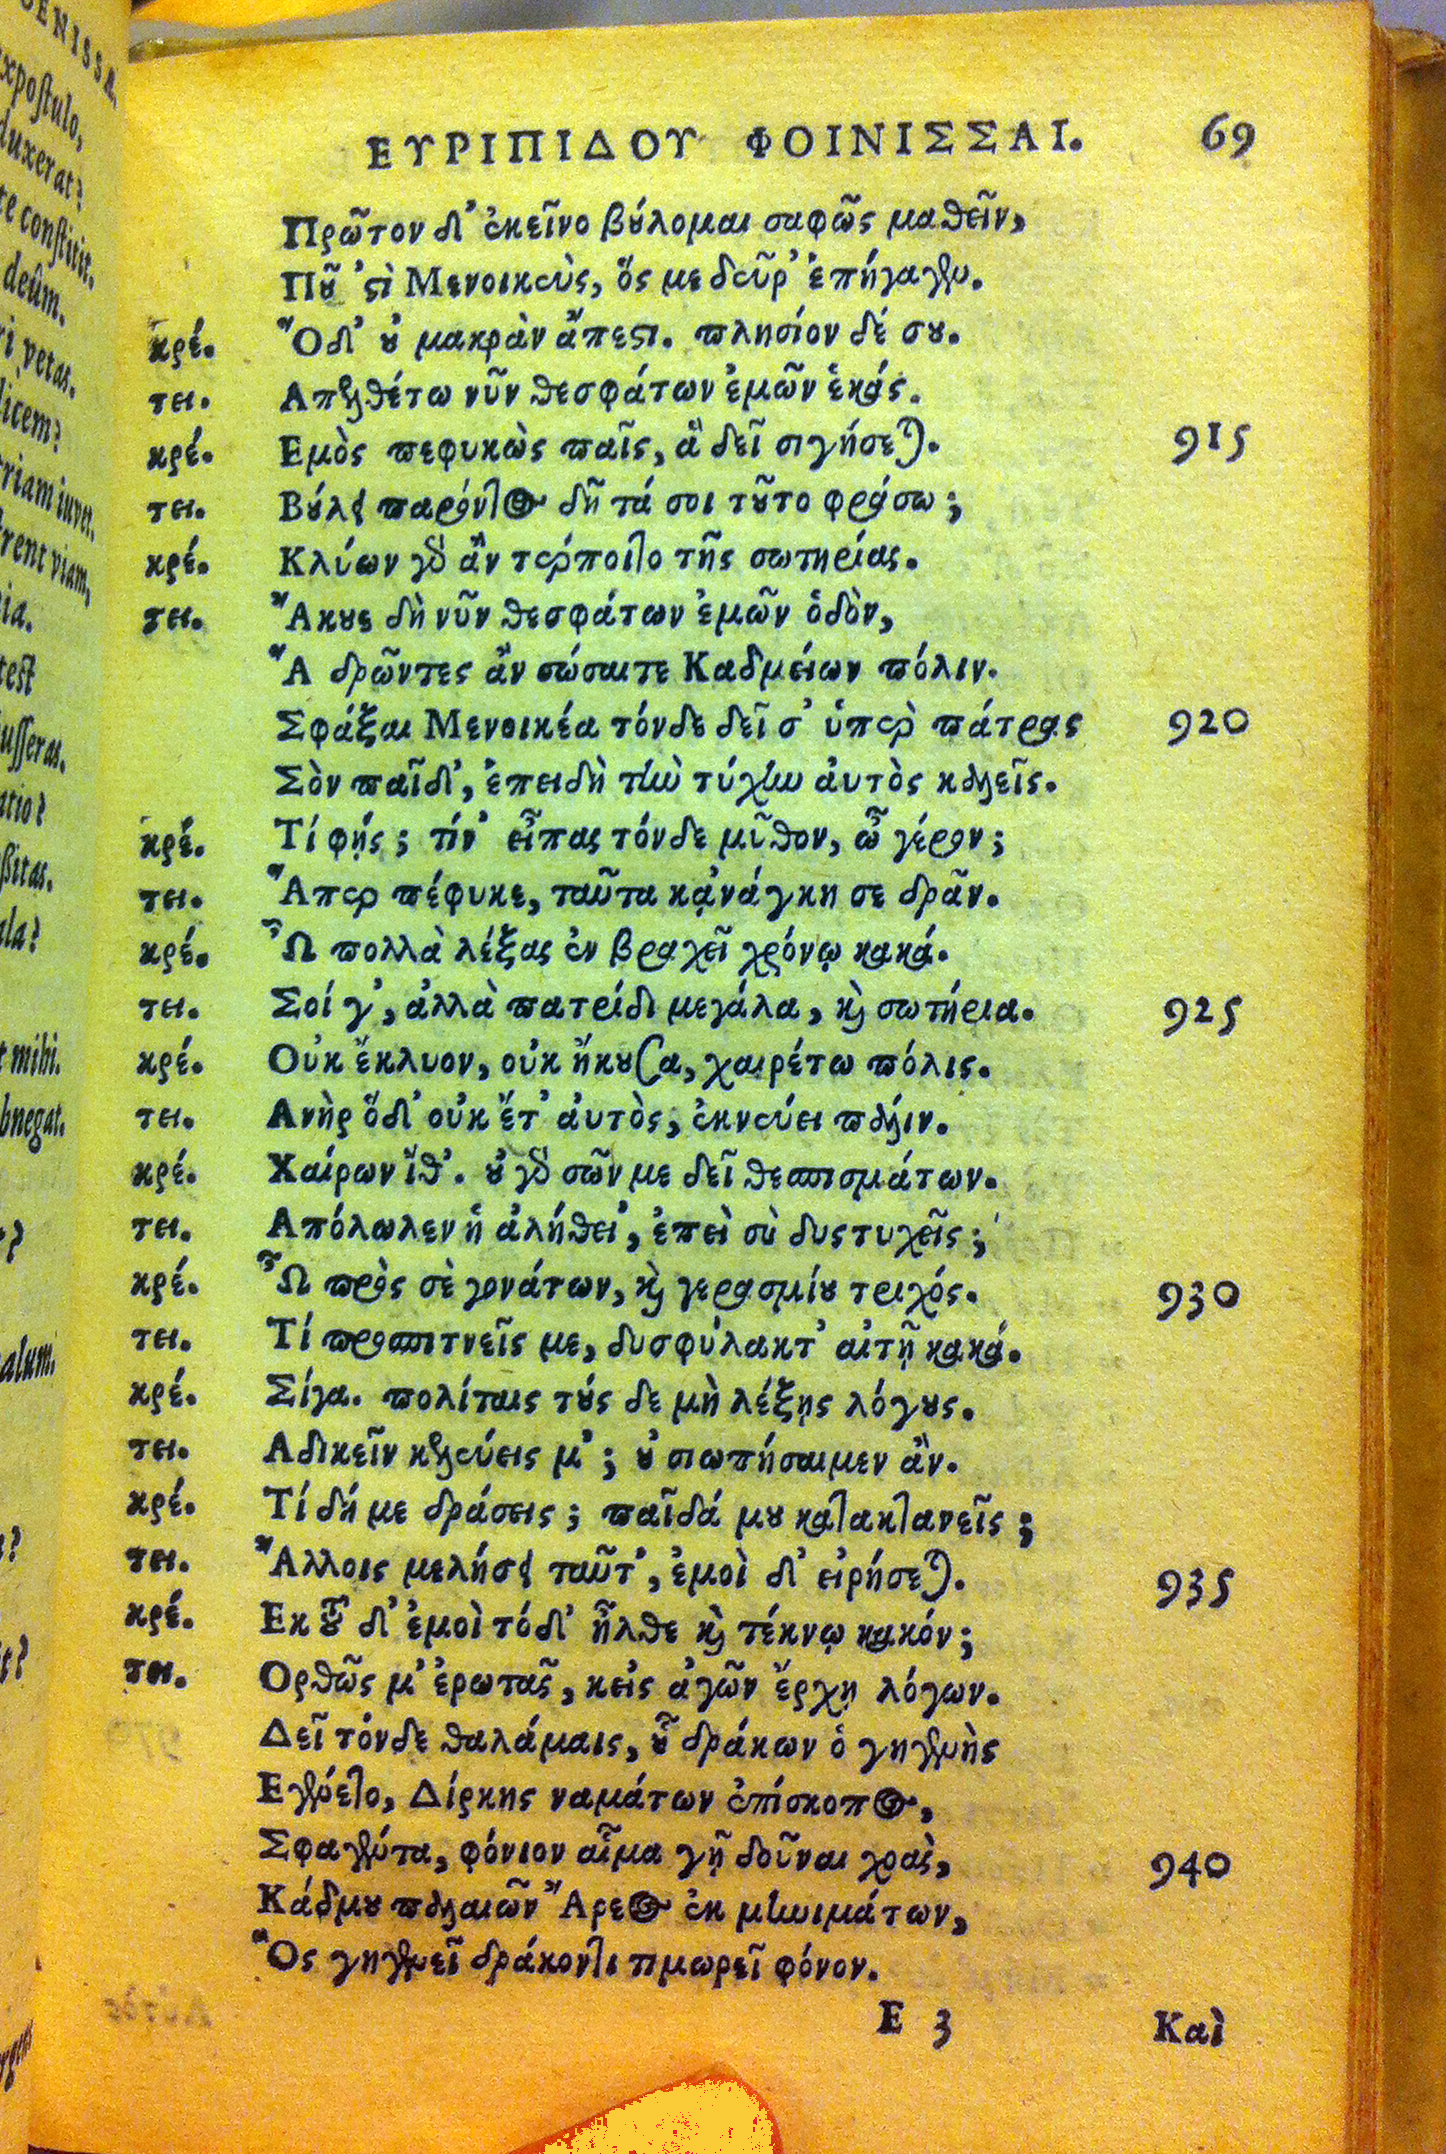 ΕΥΡΙΠΙΔΟΥ ΦΟΙΝΙΣΣΑΙ. 69
Πρῶτον δ' ἐκεῖνο βȣ́λομαι σαφῶς μαθεῖν,
Πȣ͂ 'ςὶ Μενοικεὺς, ὅς με δεῦρ' ἐπήγαγεν.
κρέ. Ὅδ' ȣ̓ μακρὰν ἄπεςι. πλησίον δέ σȣ.
τει. Απελθέτω νῦν θεσφάτων ἐμῶν ἑκάς.
κρέ. Εμὸς πεφυκὼς παῖς, ἃ δεῖ σιγήσεται. 915
τει. Βȣ́λει παρόντος δῆτά σοι τȣ͂το φράσω;
κρέ. Κλύων γὰρ ἂν τέρποιτο τῆς σωτηρίας.
τει. Ἄκȣε δὴ νῦν θεσφάτων ἐμῶν ὁδὸν,
Ἃ δρῶντες ἂν σώσαιτε Καδμείων πόλιν.
Σφάξαι Μενοικέα τόνδε δεῖ σ' ὑπὲρ πάτρας 920
Σὸν παῖδ', ἐπειδὴ τὴν τύχην ἀυτὸς καλεῖς.
κρέ. Τί φῄς; τίν' εἶπας τόνδε μῦθον, ὦ γέρον;
τει. Ἅπερ πέφυκε, ταῦτα κᾀνάγκη σε δρᾶν.
κρέ. Ὦ πολλὰ λέξας ἐν βραχεῖ χρόνῳ κακά.
τει. Σοί γ', ἀλλὰ πατρίδι μεγάλα, καὶ σωτήρια. 925
κρέ. Οὐκ ἔκλυον, οὐκ ἤκȣσα, χαιρέτω πόλις.
τει. Ανὴρ ὅδ' οὐκ ἔτ' ἀυτὸς, ἐκνεύει πάλιν.
κρέ. Χαίρων ἴθ'. ȣ̓ γὰρ σῶν με δεῖ θεσπισμάτων.
τει. Απόλωλεν ἡ ἀλήθει', ἐπεὶ σὺ δυςτυχεῖς;
κρέ. Ὦ πρὸς σὲ γονάτων, καὶ γερασμίȣ τριχός. 930
τει. Τί προσπιτνεῖς με, δυσφύλακτ' αἰτῇ κακά.
κρέ. Σίγα. πολίταις τȣ́ς δε μὴ λέξῃς λόγȣς.
τει. Αδικεῖν κελεύεις μ'; ȣ̓ σιωπήσαιμεν ἄν.
κρέ. Τί δή με δράσεις; παῖδά μȣ κατακτανεῖς;
τει. Ἄλλοις μελήσει ταῦτ', ἐμοὶ δ' εἰρήσεται. 935
κρέ. Εκ τȣ͂ δ' ἐμοὶ τόδ' ἦλθε καὶ τέκνῳ κακόν;
τει. Ορθῶς μ' ἐρωτᾶς, κεἰς ἀγῶν ἔρχῃ λόγων.
Δεῖ τόνδε θαλάμαις, ȣ̔͂ δράκων ὁ γηγενὴς
Εγένετο, Δίρκης ναμάτων ἐπίσκοπος,
Σφαγέντα, φόνιον αἷμα γῇ δοῦναι χοαὶς, 940
Κάδμȣ παλαιῶν Ἄρεος ἐκ μηνιμάτων,
Ὃς γηγενεῖ δράκοντι τιμωρεῖ φόνον.
E 3 Καὶ